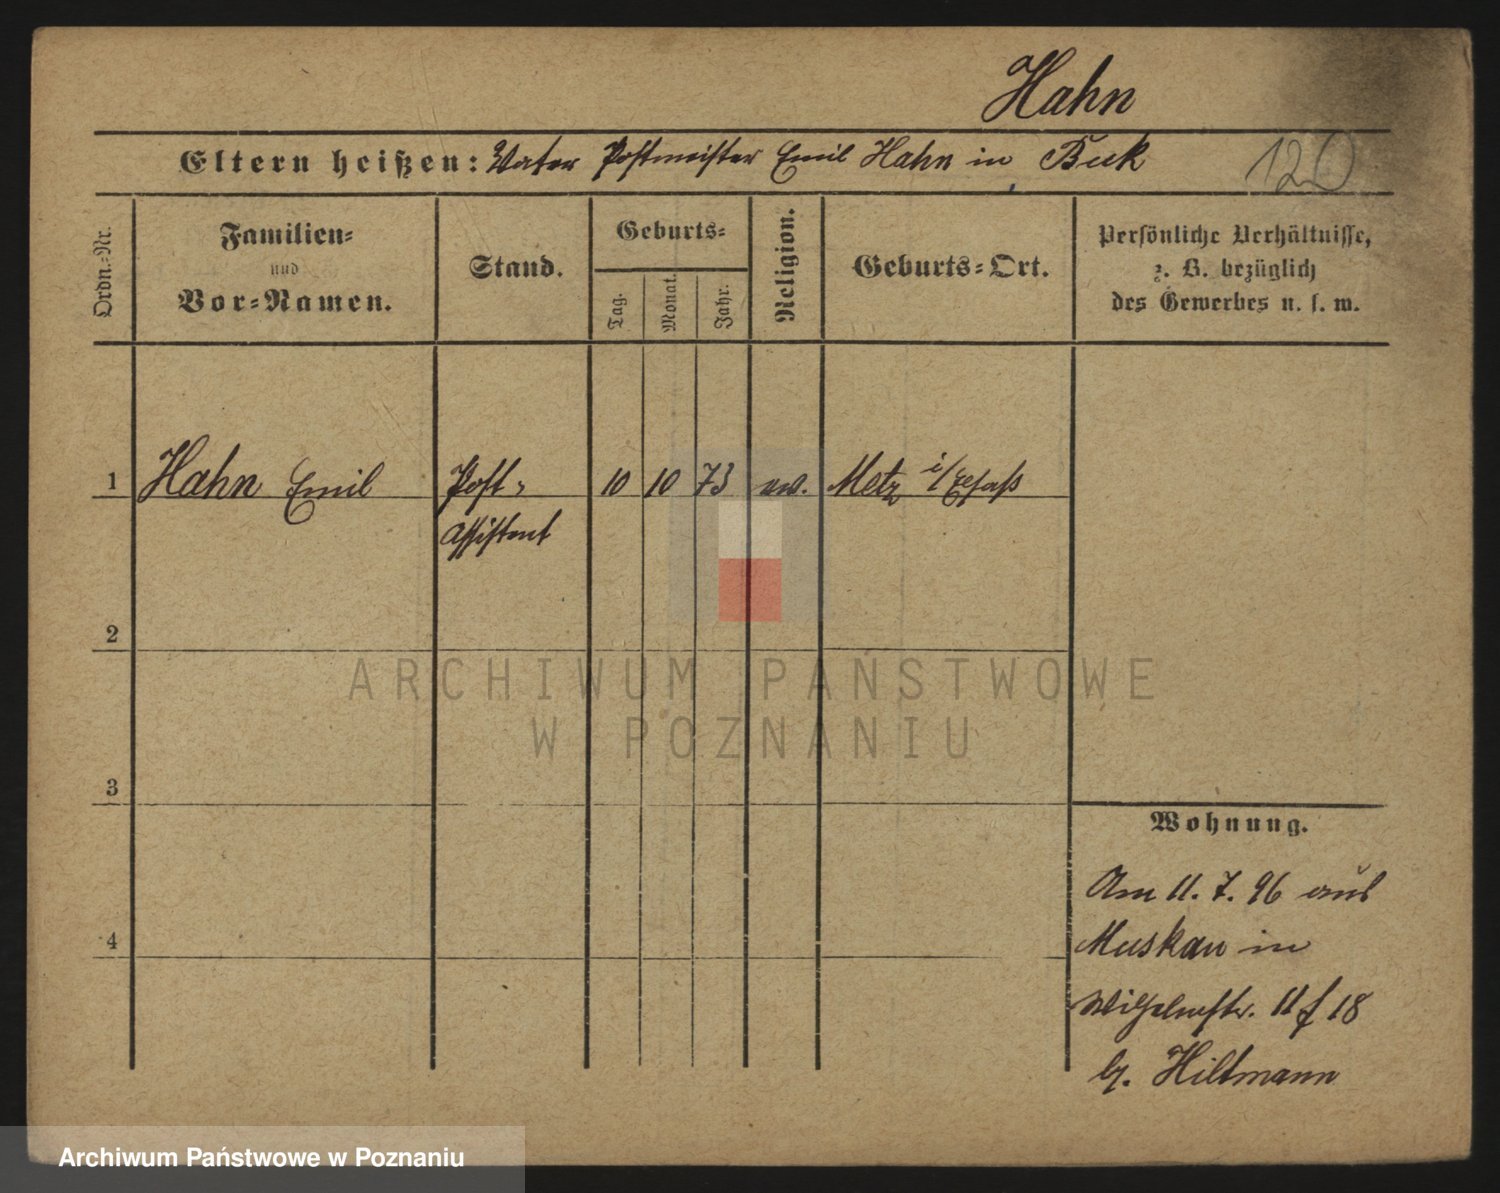 Hahn
Eltern heißen: Vater Postmeister Emil Hahn in Buk
120
Ordn.-Nr.
Familien-
und
Vor-Namen.
Stand.
Geburts-
Tag.
Monat.
Jahr.
Religion.
Geburts-Ort.
Persönliche Verhältnisse,
z. B. bezüglich
des Gewerbes u. s. w.
1 Hahn Emil Post- 10 10 73 ev. Metz i/Elsaß
Assistent
2
3
4
Wohnung.
Am 11. 7. 96 aus
Muskau in
Wilhelmstr. 18
b. Hiltmann
ARCHIWUM PAŃSTWOWE
W POZNANIU
Archiwum Państwowe w Poznaniu